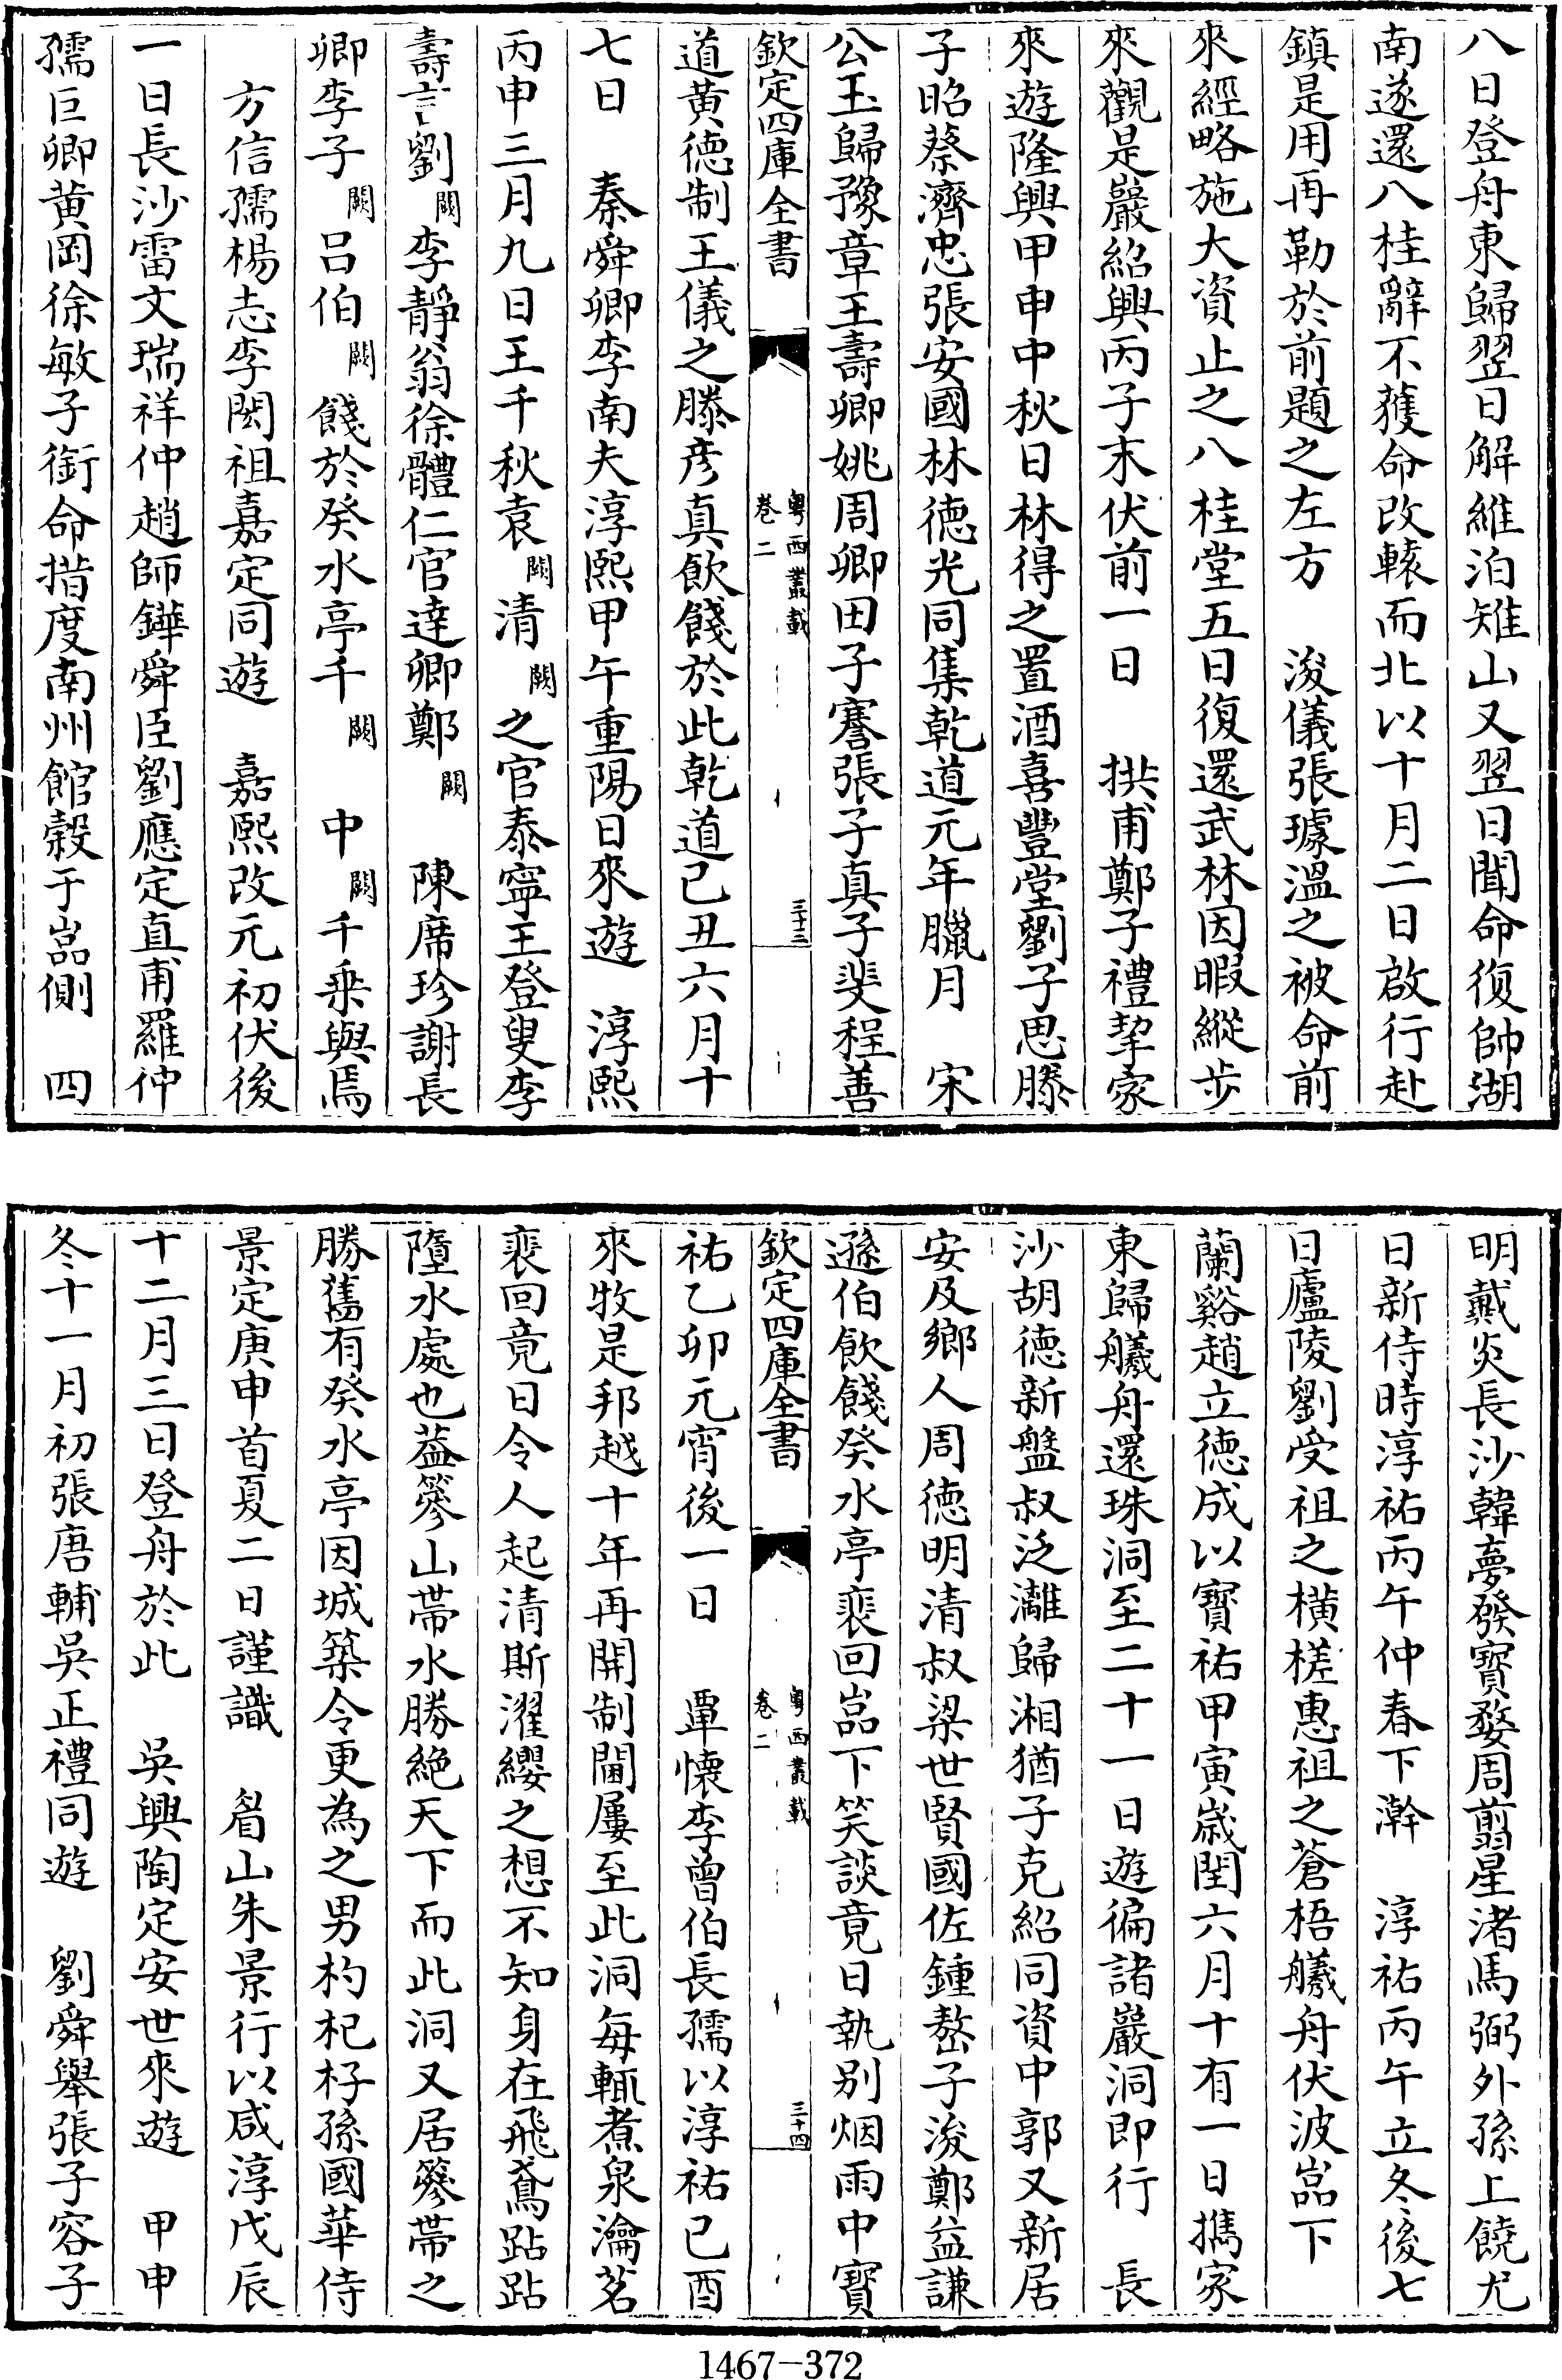 八日登舟東歸翌日解維泊雉山又翌日聞命復帥湖
南遂還八桂辭不獲命改轅而北以十月二日啟行赴
鎮是用再勒於前題之左方　浚儀張璩溫之被命前
來經略施大資止之八桂堂五日復還武林因暇縱步
來觀是巖紹興丙子末伏前一日　拱甫鄭子禮挈家
來遊隆興甲申中秋日林得之置酒喜豐堂劉子思滕
子昭蔡濟忠張安國林德光同集乾道元年臘月　宋
公玉歸豫章王壽卿姚周卿田子騫張子真子斐程善
欽定四庫全書　粵西叢載　卷二　三十三
道黃德制王儀之滕彥真飲餞於此乾道己丑六月十
七日　秦舜卿李南夫淳熙甲午重陽日來遊　淳熙
丙申三月九日王千秋袁闕清闕之官泰寧王登叟李
壽言劉闕李靜翁徐體仁官達卿鄭闕　陳席珍謝長
卿李子闕呂伯闕餞於癸水亭千闕　中闕千乗與焉
方信孺楊志李閎祖嘉定同遊　嘉熙改元初伏後
一日長沙雷文瑞祥仲趙師鏵舜臣劉應定直甫羅仲
孺巨卿黃岡徐敏子銜命揩度南州館穀于嵓側　四
明戴炎長沙韓夢發寶婺周翦星渚馬弼外孫上饒尤
日新侍時淳祐丙午仲春下澣　淳祐丙午立冬後七
日廬陵劉受祖之橫槎惠祖之蒼梧艤舟伏波嵓下
蘭谿趙立德成以寶祐甲寅歲閏六月十有一日攜家
東歸艤舟還珠洞至二十一日遊徧諸巖洞即行　長
沙胡德新盤叔泛灕歸湘猶子克紹同資中郭又新居
安及鄉人周德明清叔梁世賢國佐鍾嶅子浚鄭益謙
遜伯飲餞癸水亭裴回嵓下笑談竟日執別烟雨中寶
欽定四庫全書　粵西叢載　卷二　三十四
祐乙卯元宵後一日　覃懷李曾伯長孺以淳祐己酉
來牧是邦越十年再開制閫屢至此洞每輒煮泉瀹茗
裴回竟日令人起清斯濯纓之想不知身在飛鳶跕跕
墮水處也葢篸山帶水勝絶天下而此洞又居篸帶之
勝舊有癸水亭因城築令更為之男杓杞杍孫國華侍
景定庚申首夏二日謹識　眉山朱景行以咸淳戊辰
十二月三日登舟於此　吳興陶定安世來遊　甲申
冬十一月初張唐輔吳正禮同遊　劉舜舉張子容子
1467-372